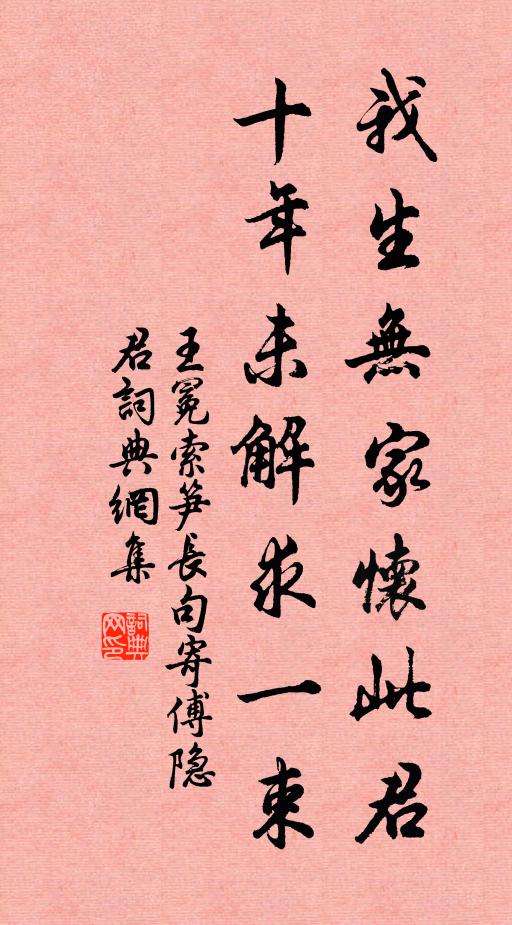 我生無家懷此君
十年未解求一束
王冕索笋長句寄傅隐
君詞典網集
詞典網印